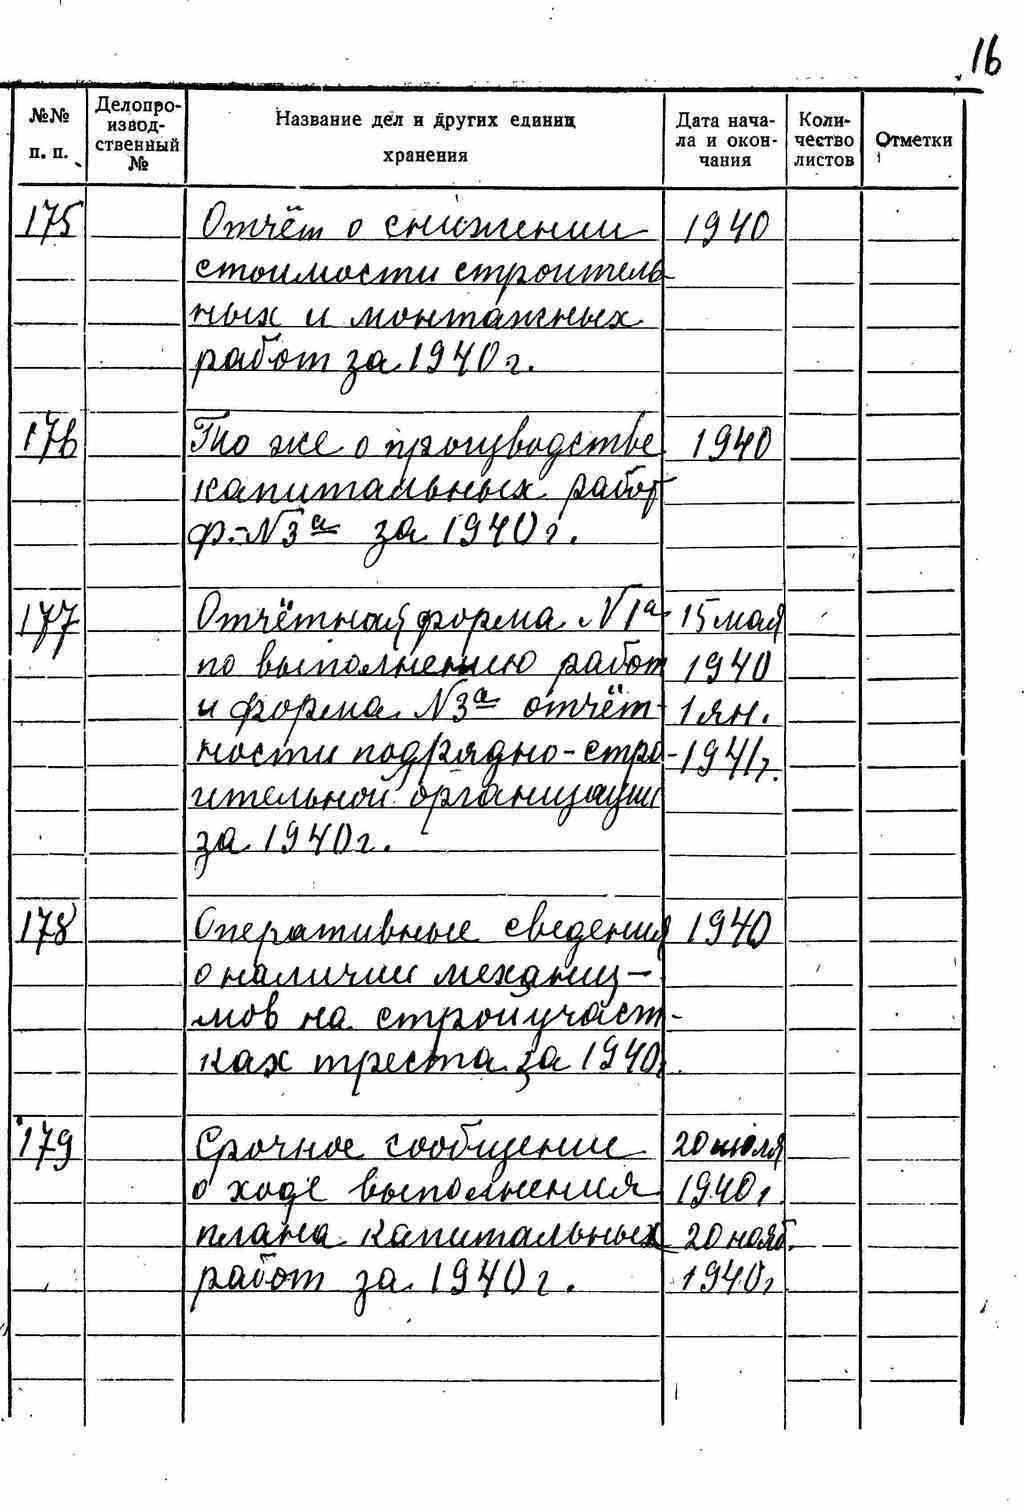 16
№№ п. п.
Делопро-
извод-
ственный
№
Название дел и других единиц
хранения
Дата нача-
ла и окон-
чания
Коли-
чество
листов
Отметки
175 Отчёт о снижении 1940
стоимости строитель-
ных и монтажных
работ за 1940 г.
176 То же о производстве 1940
капитальных работ
ф.-N 3а за 1940 г.
177 Отчётная форма N 1а 15 мая
по выполнению работ 1940
и форма N 3а отчёт- 1 ян.
ности подрядно-стро- 1941 г.
ительной организации
за 1940 г.
178 Оперативные сведения 1940
о наличии механиз-
мов на стройучаст-
ках треста за 1940 г.
179 Срочное сообщение 20 июля
о ходе выполнения 1940 г.
плана капитальных 20 нояб.
работ за 1940 г. 1940 г